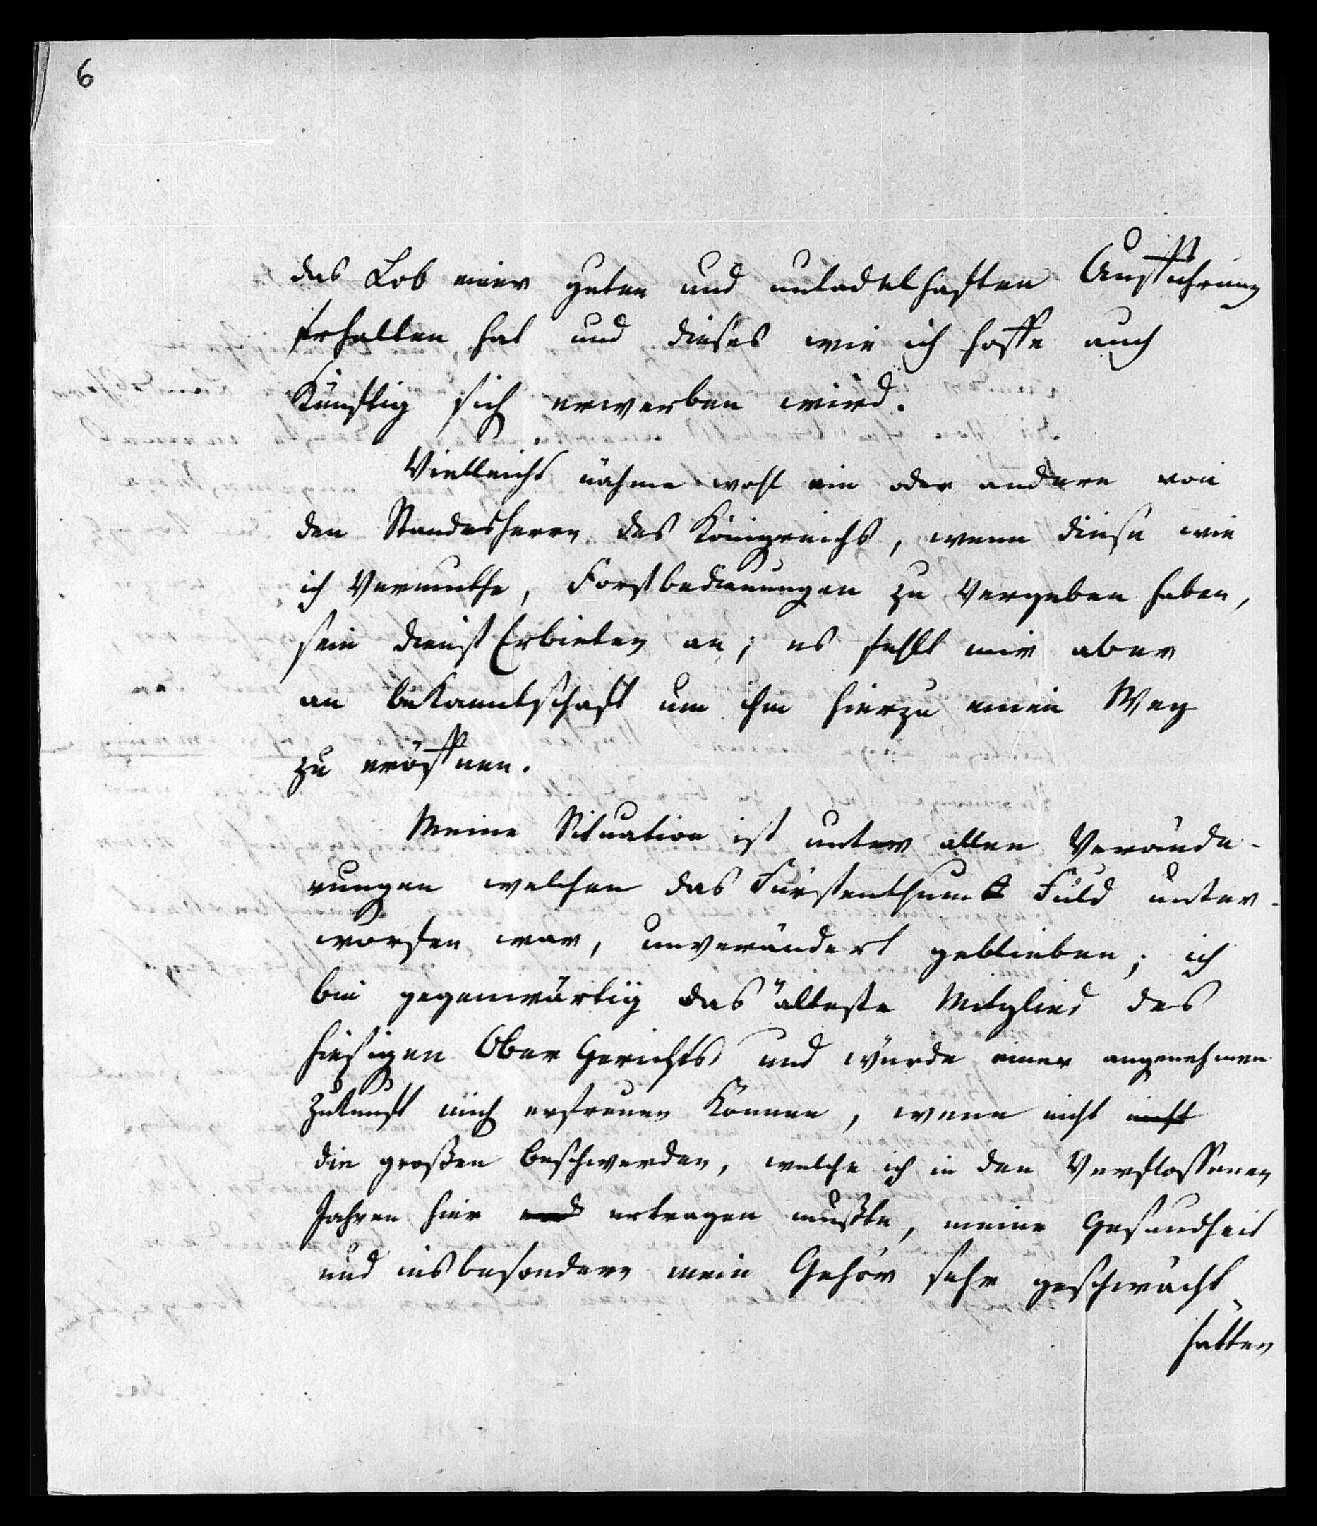 6
das Lob einer guten und untadelhaften Aufführung
erhalten hat und dieses wie ich hoffe auch
Künftig sich erwerben wird.
Vielleicht nähme wohl ein oder andere von
den Standesherrn des Königreichs, wenn diese wie
ich Vermuthe, Forstbedienungen zu Vergeben haben,
sein dienst Erbieten an; es fehlt mir aber
an beKanntschaft um ihm hierzu einen Weg
zu eröffnen.
Meine Situation ist unter allen Verände-
rungen welchen das Fürstenthum Fuld unter-
worfen war, unverändert geblieben; ich
bin gegenwärtig das älteste Mitglied des
hiesigen Ober Gerichts und würde einer angenehmen
Zukunft mich erfreuen Können, wenn nicht nicht
die großen beschwerden, welche ich in den Verflossenen
Jahren hier und ertragen mußte, meine Gesundheit
und insbesondere mein Gehör sehr geschwächt
hätten